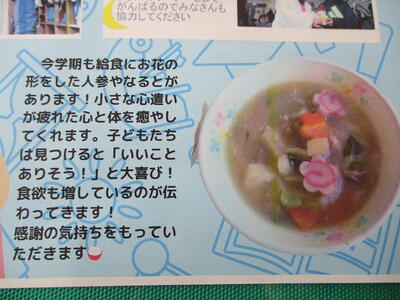 がんばるのでみなさんも
協力してください
今学期も給食にお花の
形をした人参やなるとが
あります！小さな心遣い
が疲れた心と体を癒やし
てくれます。子どもたち
は見つけると「いいこと
ありそう！」と大喜び！
食欲も増しているのが伝
わってきます！
感謝の気持ちをもってい
ただきます🍚